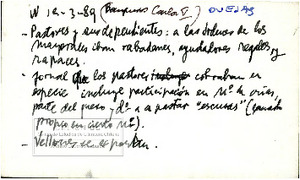 W 12-3-89 (Franquismo Carlos V) OVEJAS
- Pastores y sus dependientes: a las órdenes de los
mayorales iban rabadanes, ayudadores, zagales y
rapaces.
- jornal de los pastores cobraban en
especie incluye participación en nº de crías,
parte del queso y dº a a pastar "escusas" (ganado
propio en cierto nº).
- Vellones